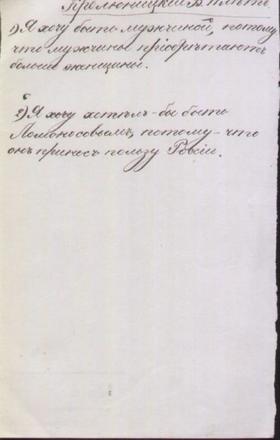 1) Я хочу быть мужчиной, потому
что мужчины приобретают
больше женщины.
2) Я хочу хотѣлъ-бы быть
Ломоносовымъ, потому-что
онъ принесъ пользу Россіи.